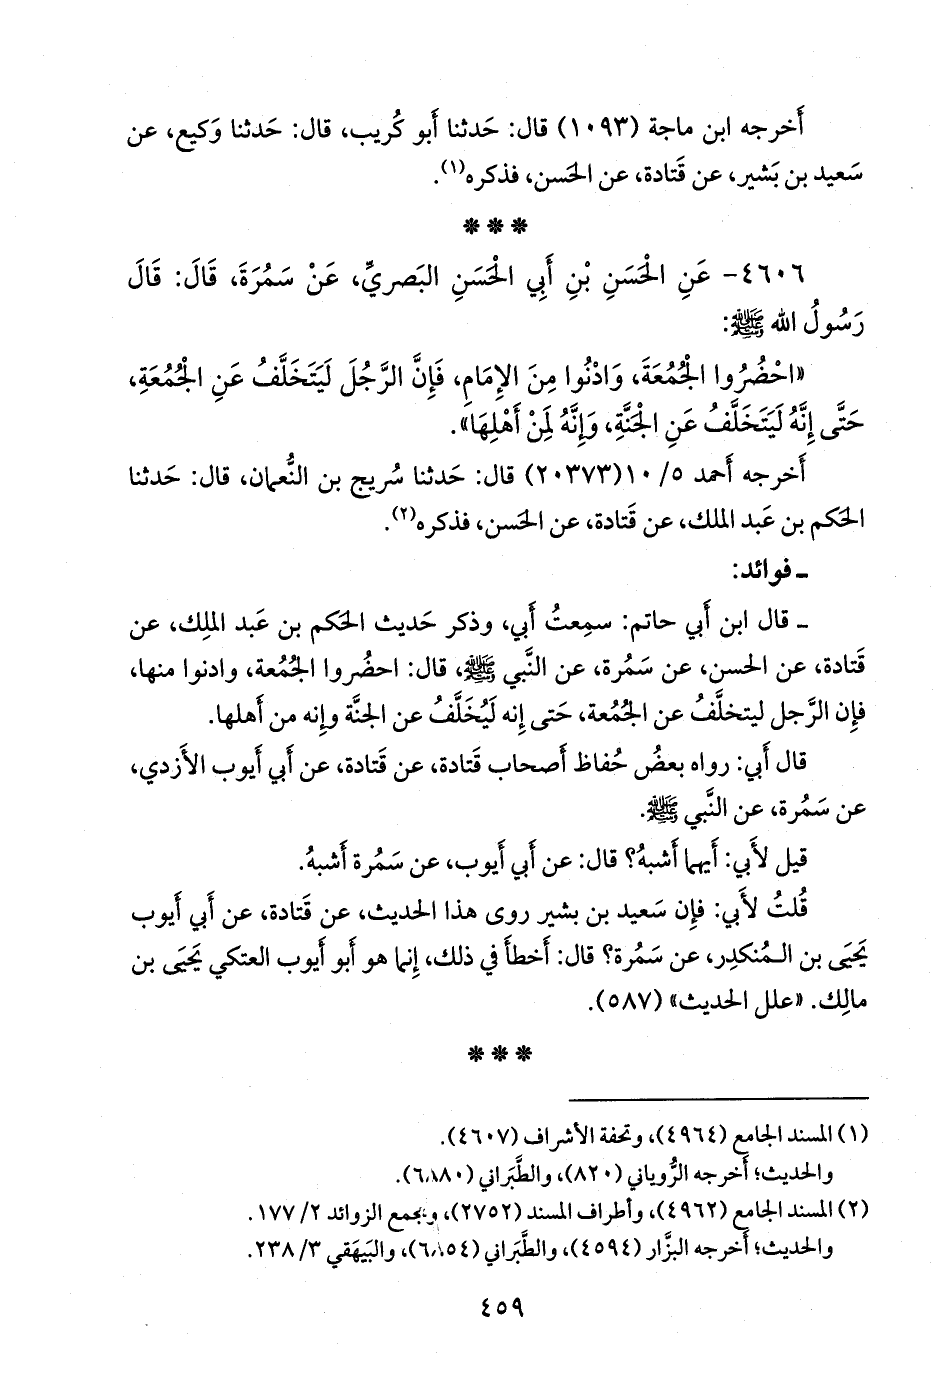 أَخرجه ابن ماجة (١٠٩٣) قال: حَدثنا أَبو كُريب، قال: حَدثنا وَكيع، عن
سَعيد بن بَشير، عن قَتادة، عن الحَسن، فذكره(١).
***
٤٦٠٦- عَنِ الْحَسَنِ بْنِ أَبِي الْحَسَنِ البَصريِّ، عَنْ سَمُرَةَ، قَالَ: قَالَ
رَسُولُ الله ﷺ:
«احْضُرُوا الْجُمُعَةَ، وَادْنُوا مِنَ الإِمَامِ، فَإِنَّ الرَّجُلَ لَيَتَخَلَّفُ عَنِ الْجُمُعَةِ،
حَتَّى إِنَّهُ لَيَتَخَلَّفُ عَنِ الْجَنَّةِ، وَإِنَّهُ لَمِنْ أَهْلِهَا».
أَخرجه أَحمد ٥/ ١٠(٢٠٣٧٣) قال: حَدثنا سُريج بن النُّعمان، قال: حَدثنا
الحَكم بن عَبد الملك، عن قَتادة، عن الحَسن، فذكره(٢).
ـ فوائد:
ـ قال ابن أَبي حاتم: سمِعتُ أَبي، وذكر حَديث الحَكم بن عَبد الملِك، عن
قَتادة، عن الحَسن، عن سَمُرة، عن النَّبي ﷺ، قال: احضُروا الجُمُعة، وادنوا منها،
فإِن الرَّجل ليتخلَّفُ عن الجُمُعة، حَتى إِنه لَيُخَلَّفُ عن الجنَّة وإِنه من أَهلها.
قال أَبي: رواه بعضُ حُفاظ أَصحاب قَتادة، عن قَتادة، عن أَبي أَيوب الأَزدي،
عن سَمُرة، عن النَّبي ﷺ.
قيل لأَبي: أَيهما أَشبهُ؟ قال: عن أَبي أَيوب، عن سَمُرة أَشبهُ.
قُلتُ لأَبي: فإِن سَعيد بن بشير روى هذا الحَديث، عن قَتادة، عن أَبي أَيوب
يَحيَى بن الـمُنكدِر، عن سَمُرة؟ قال: أَخطأَ في ذلك، إِنما هو أَبو أَيوب العتكي يَحيَى بن
مالِك. «علل الحَديث» (٥٨٧).
***
(١) المسند الجامع (٤٩٦٤)، وتحفة الأشراف (٤٦٠٧).
والحَديث؛ أَخرجه الرُّوياني (٨٢٠)، والطَّبَراني (٦٨٨٠).
(٢) المسند الجامع (٤٩٦٢)، وأطراف المسند (٢٧٥٢)، ومجمع الزوائد ٢/ ١٧٧.
والحَديث؛ أَخرجه البزَّار (٤٥٩٤)، والطَّبَراني (٦٨٥٤)، والبَيهَقي ٣/ ٢٣٨.
٤٥٩